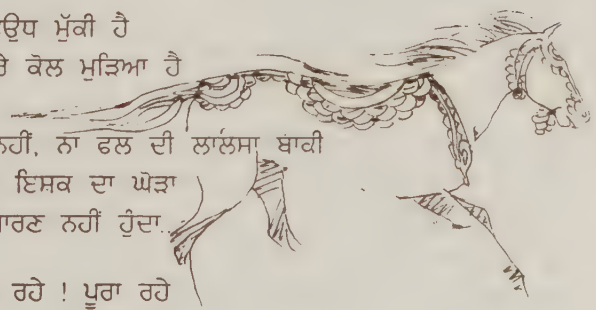 ਔਧ ਮੁੱਕੀ ਹੈ
ਕੋਲ ਮੁੜਿਆ ਹੈ
ਨਹੀਂ, ਨਾ ਫਲ ਦੀ ਲਾਲਸਾ ਬਾਕੀ
ਇਸ਼ਕ ਦਾ ਘੋੜਾ
ਨਹੀਂ ਹੁੰਦਾ..
ਰਹੇ ! ਪੂਰਾ ਰਹੇ